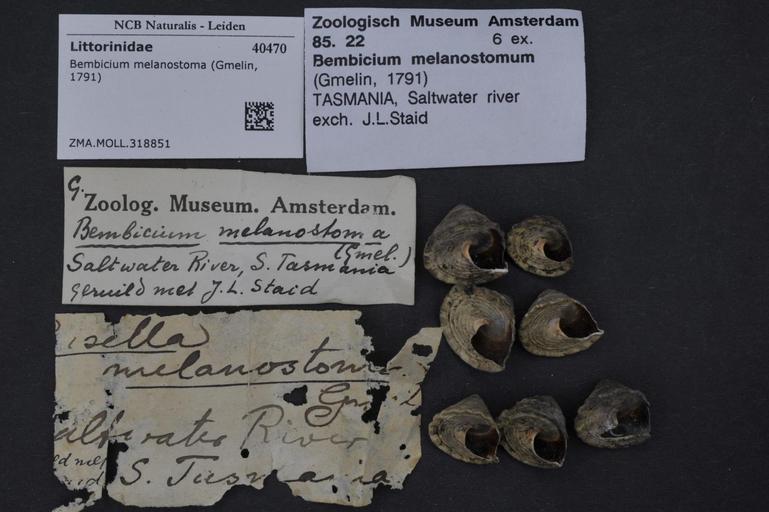 NCB Naturalis - Leiden
Littorinidae 40470
Bembicium melanostoma (Gmelin,
1791)
ZMA.MOLL.318851
Zoologisch Museum Amsterdam
85. 22 6 ex.
Bembicium melanostomum
(Gmelin, 1791)
TASMANIA, Saltwater river
exch. J.L.Staid
G.
Zoolog. Museum. Amsterdam.
Bembicium melanostoma
(Gmel.)
Saltwater River, S. Tasmania
geruild met J.L. Staid
isella
melanostom
altwater River
S. Tasmania